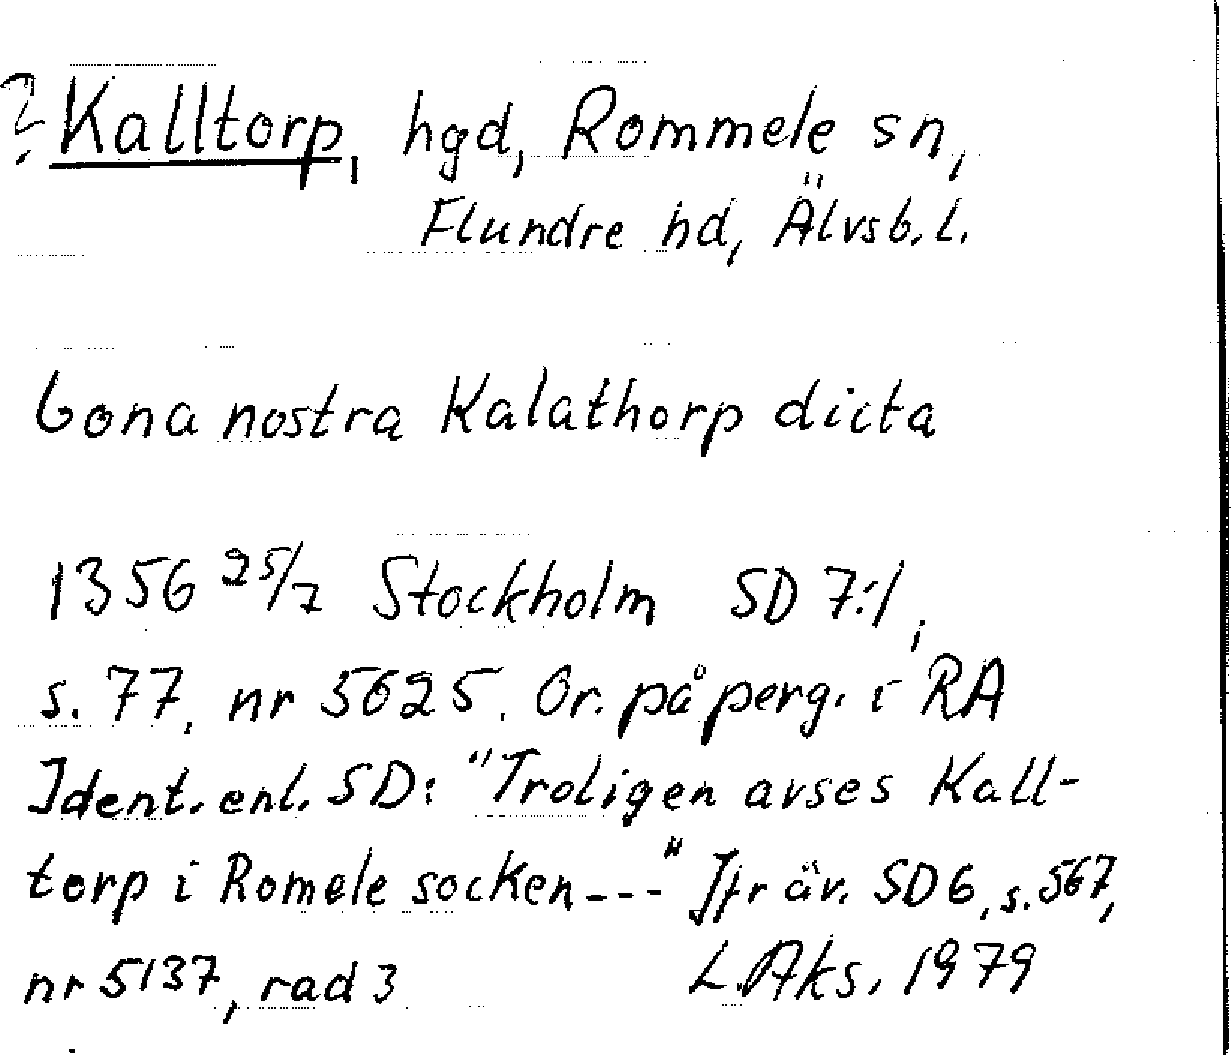 ? Kalltorp, hgd, Rommele sn,
Flundre hd, Älvsb. l.
bona nostra Kalathorp dicta
1356 25/7 Stockholm SD 7:1,
s. 77, nr 5625. Or. på perg. i RA
Ident. enl. SD: "Troligen avses Kall-
torp i Romele socken---" Jfr äv. SD6, s. 567,
nr 5137, rad 3 L. Aks. 1979